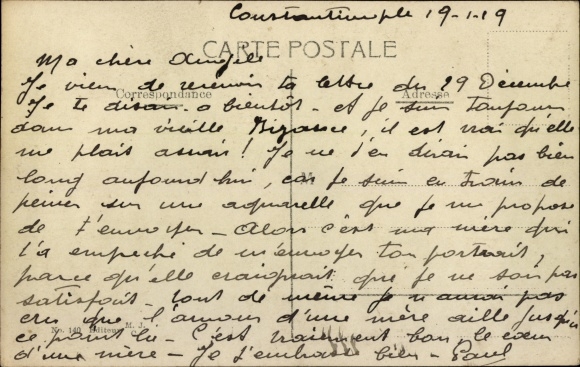 Constantinople 19-1-19
CARTE POSTALE
Ma chère Angèle
Je viens de recevoir ta lettre du 29 Décembre
Correspondance
Adresse
Je te disais à bientôt - et je suis toujours
dans ma vieille Bizance, il est vrai qu'elle
me plait aussi ! Je ne t'en dirai pas bien
long aujourd'hui, car je suis en train de
peiner sur une aquarelle que je me propose
de t'envoyer - Alors c'est ma mère qui
t'a empeché de m'envoyer ton portrait,
parce qu'elle craignait que je ne sois pas
satisfait - tout de même je n'aurais pas
cru que l'amour d'une mère aille jusqu'à
ce point là - C'est vraiment bon, le cœur
No. 140 Editeur M. J. C.
d'une mère - Je t'embrasse bien - Paul